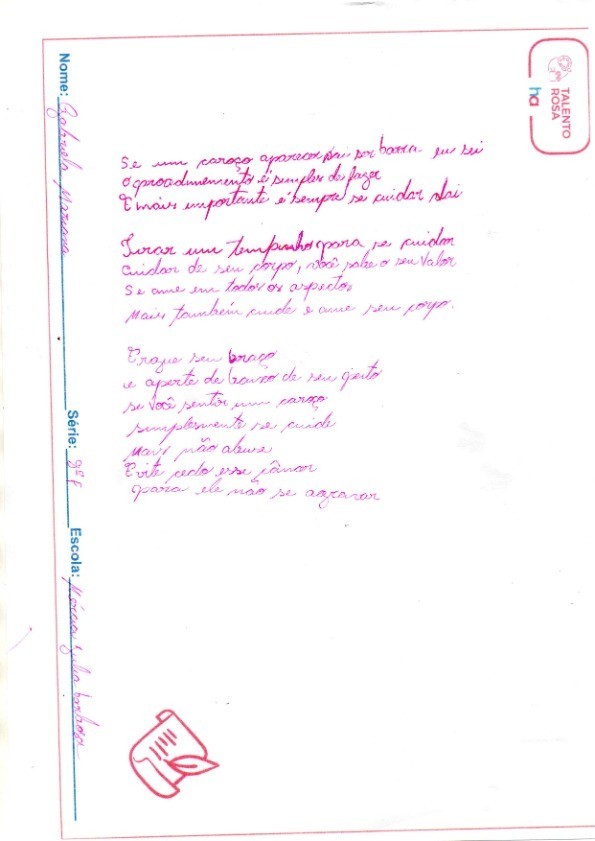 TALENTO
ROSA
ha
Nome: Gabriela Mariana
Série: 9ºF
Escola: Márcia Julia barbosa
Se um caroço aparecer vai ser barra eu sei
O procedimemento é simples de fazer
E mais importante é sempre se cuidar
Tirar um tempinho para se cuidar
Cuidar de seu corpo, você sabe o seu valor
Se ame em todos os aspectos
Mais também cuide e ame seu corpo.
Erague seu braço
e aperte de baixo de seu geito
se você sentir um caroço
simplesmente se cuide
Mais não abuse
Evite cedo esse câncer
para ele não se agravar